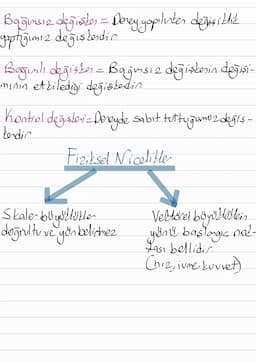 Bağımsız değişken = Deney yapılırken değişiklik
yaptığımız değişkendir
Bağımlı değişken = Bağımsız değişkenin değişi-
minin etkilediği değişkendir
Kontrol değişkeni = Deneyde sabit tuttuğumuz değiş-
kendir
Fiziksel Nicelikler
Skaler büyüklükler
doğrultu ve yön belirtmez
Vektörel büyüklüklerin
yönü, başlangıç nok-
tası bellidir.
(hız, ivme, kuvvet)